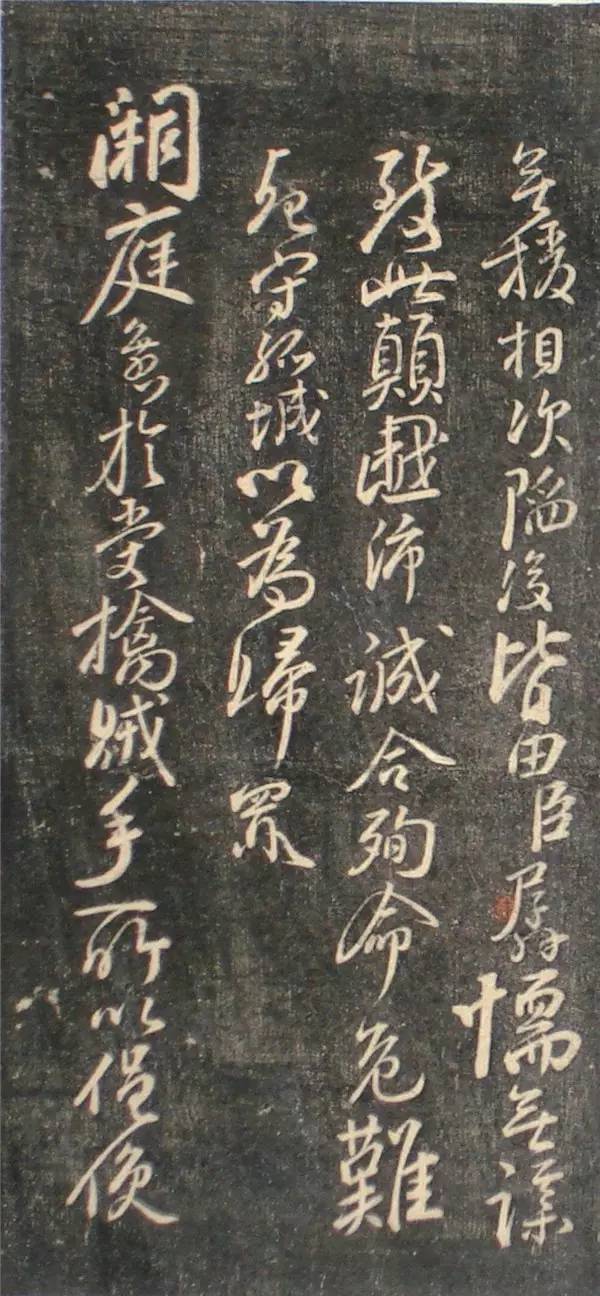 無援相次陷没皆由臣孱懦無謀
致此顛沛誠合殉命危難
死守孤城以為歸罪
闕庭愈於受擒賊手所以僶俛